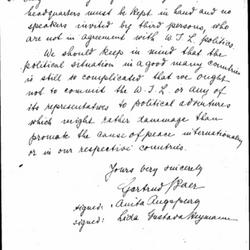 headquarters must be kept in hand and no
speakers invited by third persons, who
are not in agreement with W.I.L. politics.
We should keep in mind that the
political situation in a good many countries
is still so complicated that we ought
not to commit the W.I.L. or any of
its representatives to political adventures
which might rather dammage than
promote the cause of peace internationally
or in our respective countries.
Yours very sincerely
Gertrud Baer
signed: Anita Augspurg
signed: Lida Gustava Heymann